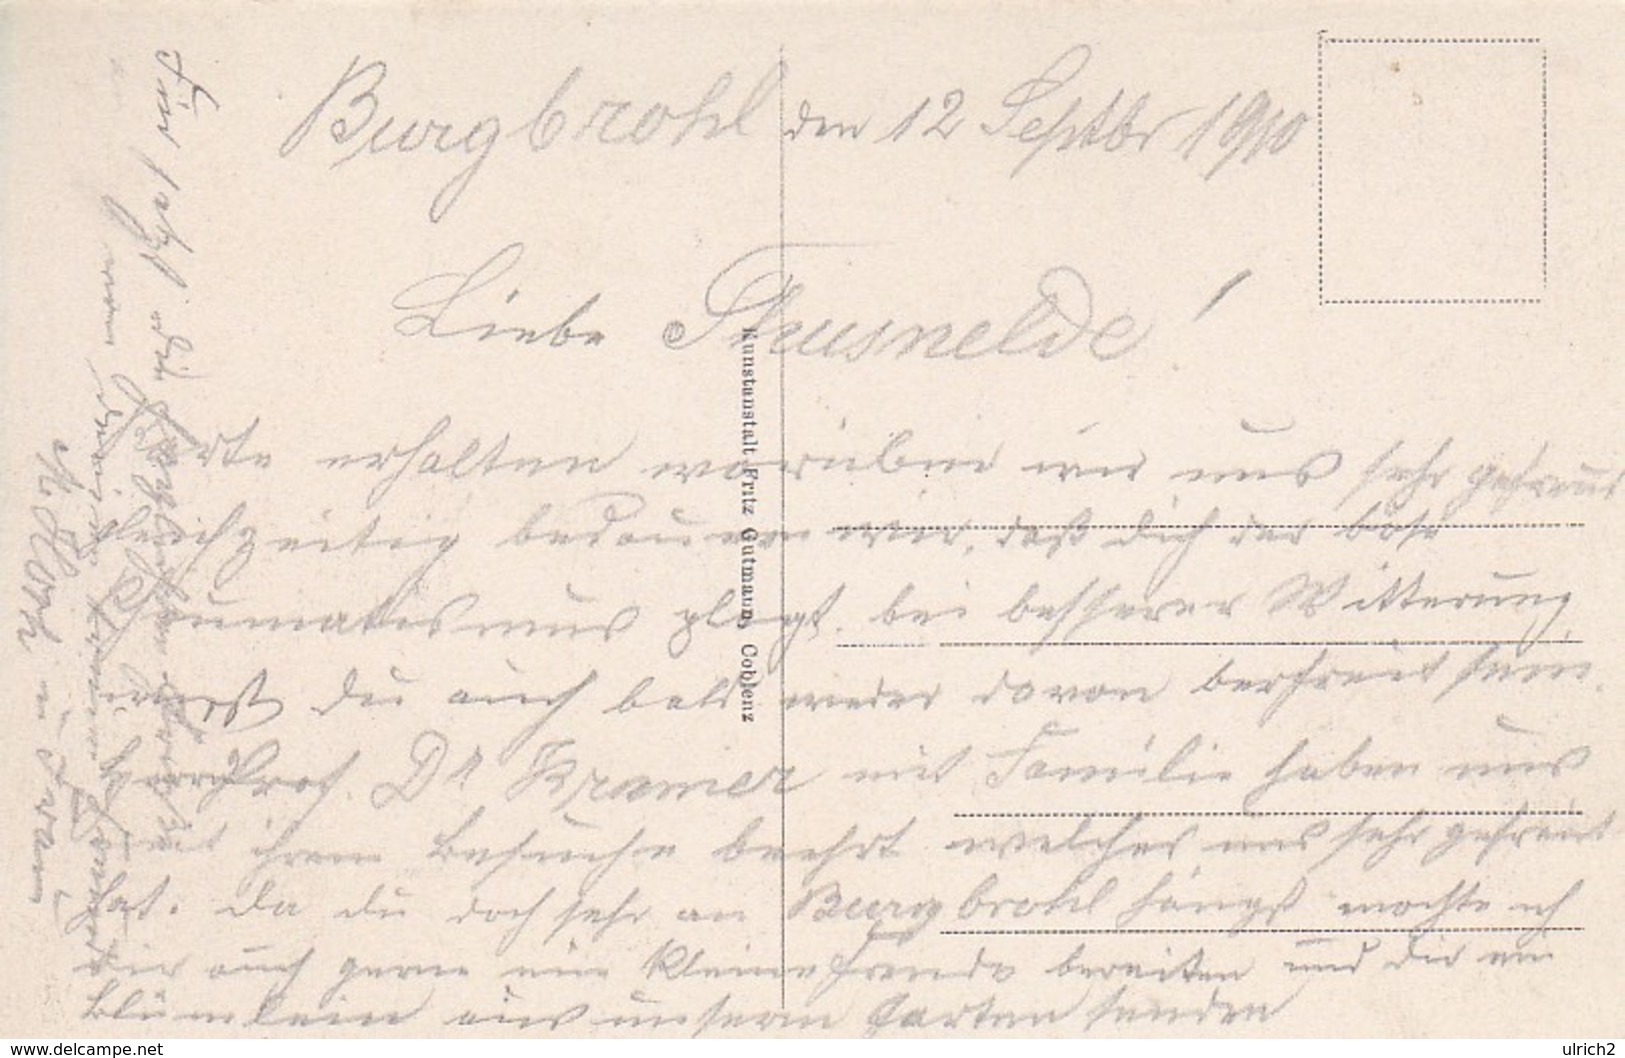 Burgbrohl den 12 Septbr 1910
Liebe Thusnelde!
Karte erhalten worüber wir uns sehr gefreut
gleichzeitig bedauern wir, daß dich der böse
Reumatismus plagt. bei besserer Witterung,
wirst du auch bald wieder davon berfreit sein.
Herr Prof. Dr Kramer mit Familie haben uns
mit ihrem Besuche beehrt welches uns sehr gefreut
hat. Da du doch sehr an Burgbrohl hängst mochte ich
dir auch gerne eine kleine Freude bereiten und dir ein
blümlein aus unserm Garten senden
Für jetzt die
Kunstanstalt Fritz Gutmann, Coblenz
ulrich2
www.delcampe.net